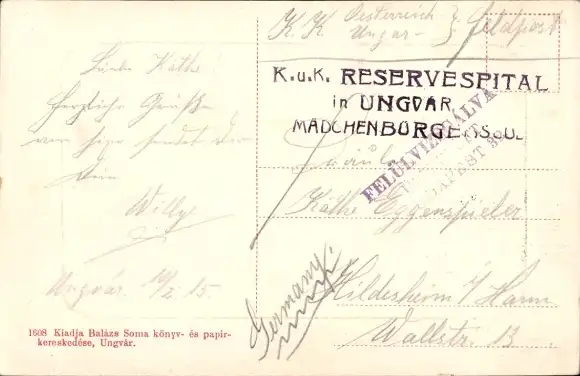 K. K. Oesterreich
Ungar-
Feldpost
K.u.K. RESERVESPITAL
in UNGVÁR
MÄDCHENBÜRGERSCUL
FELÜLVIZSGÁLVA
BUDAPEST
Liebe Käthe
Herzliche Grüße
von hier sendet Dir
Dein
Willy
Ungvár. 10/X. 15.
Fräulein
Käthe Eggenspieler
Hildesheim i/ Hann
Wallstr. 13.
Germany
1608 Kiadja Balázs Soma könyv- és papir-
kereskedése, Ungvár.